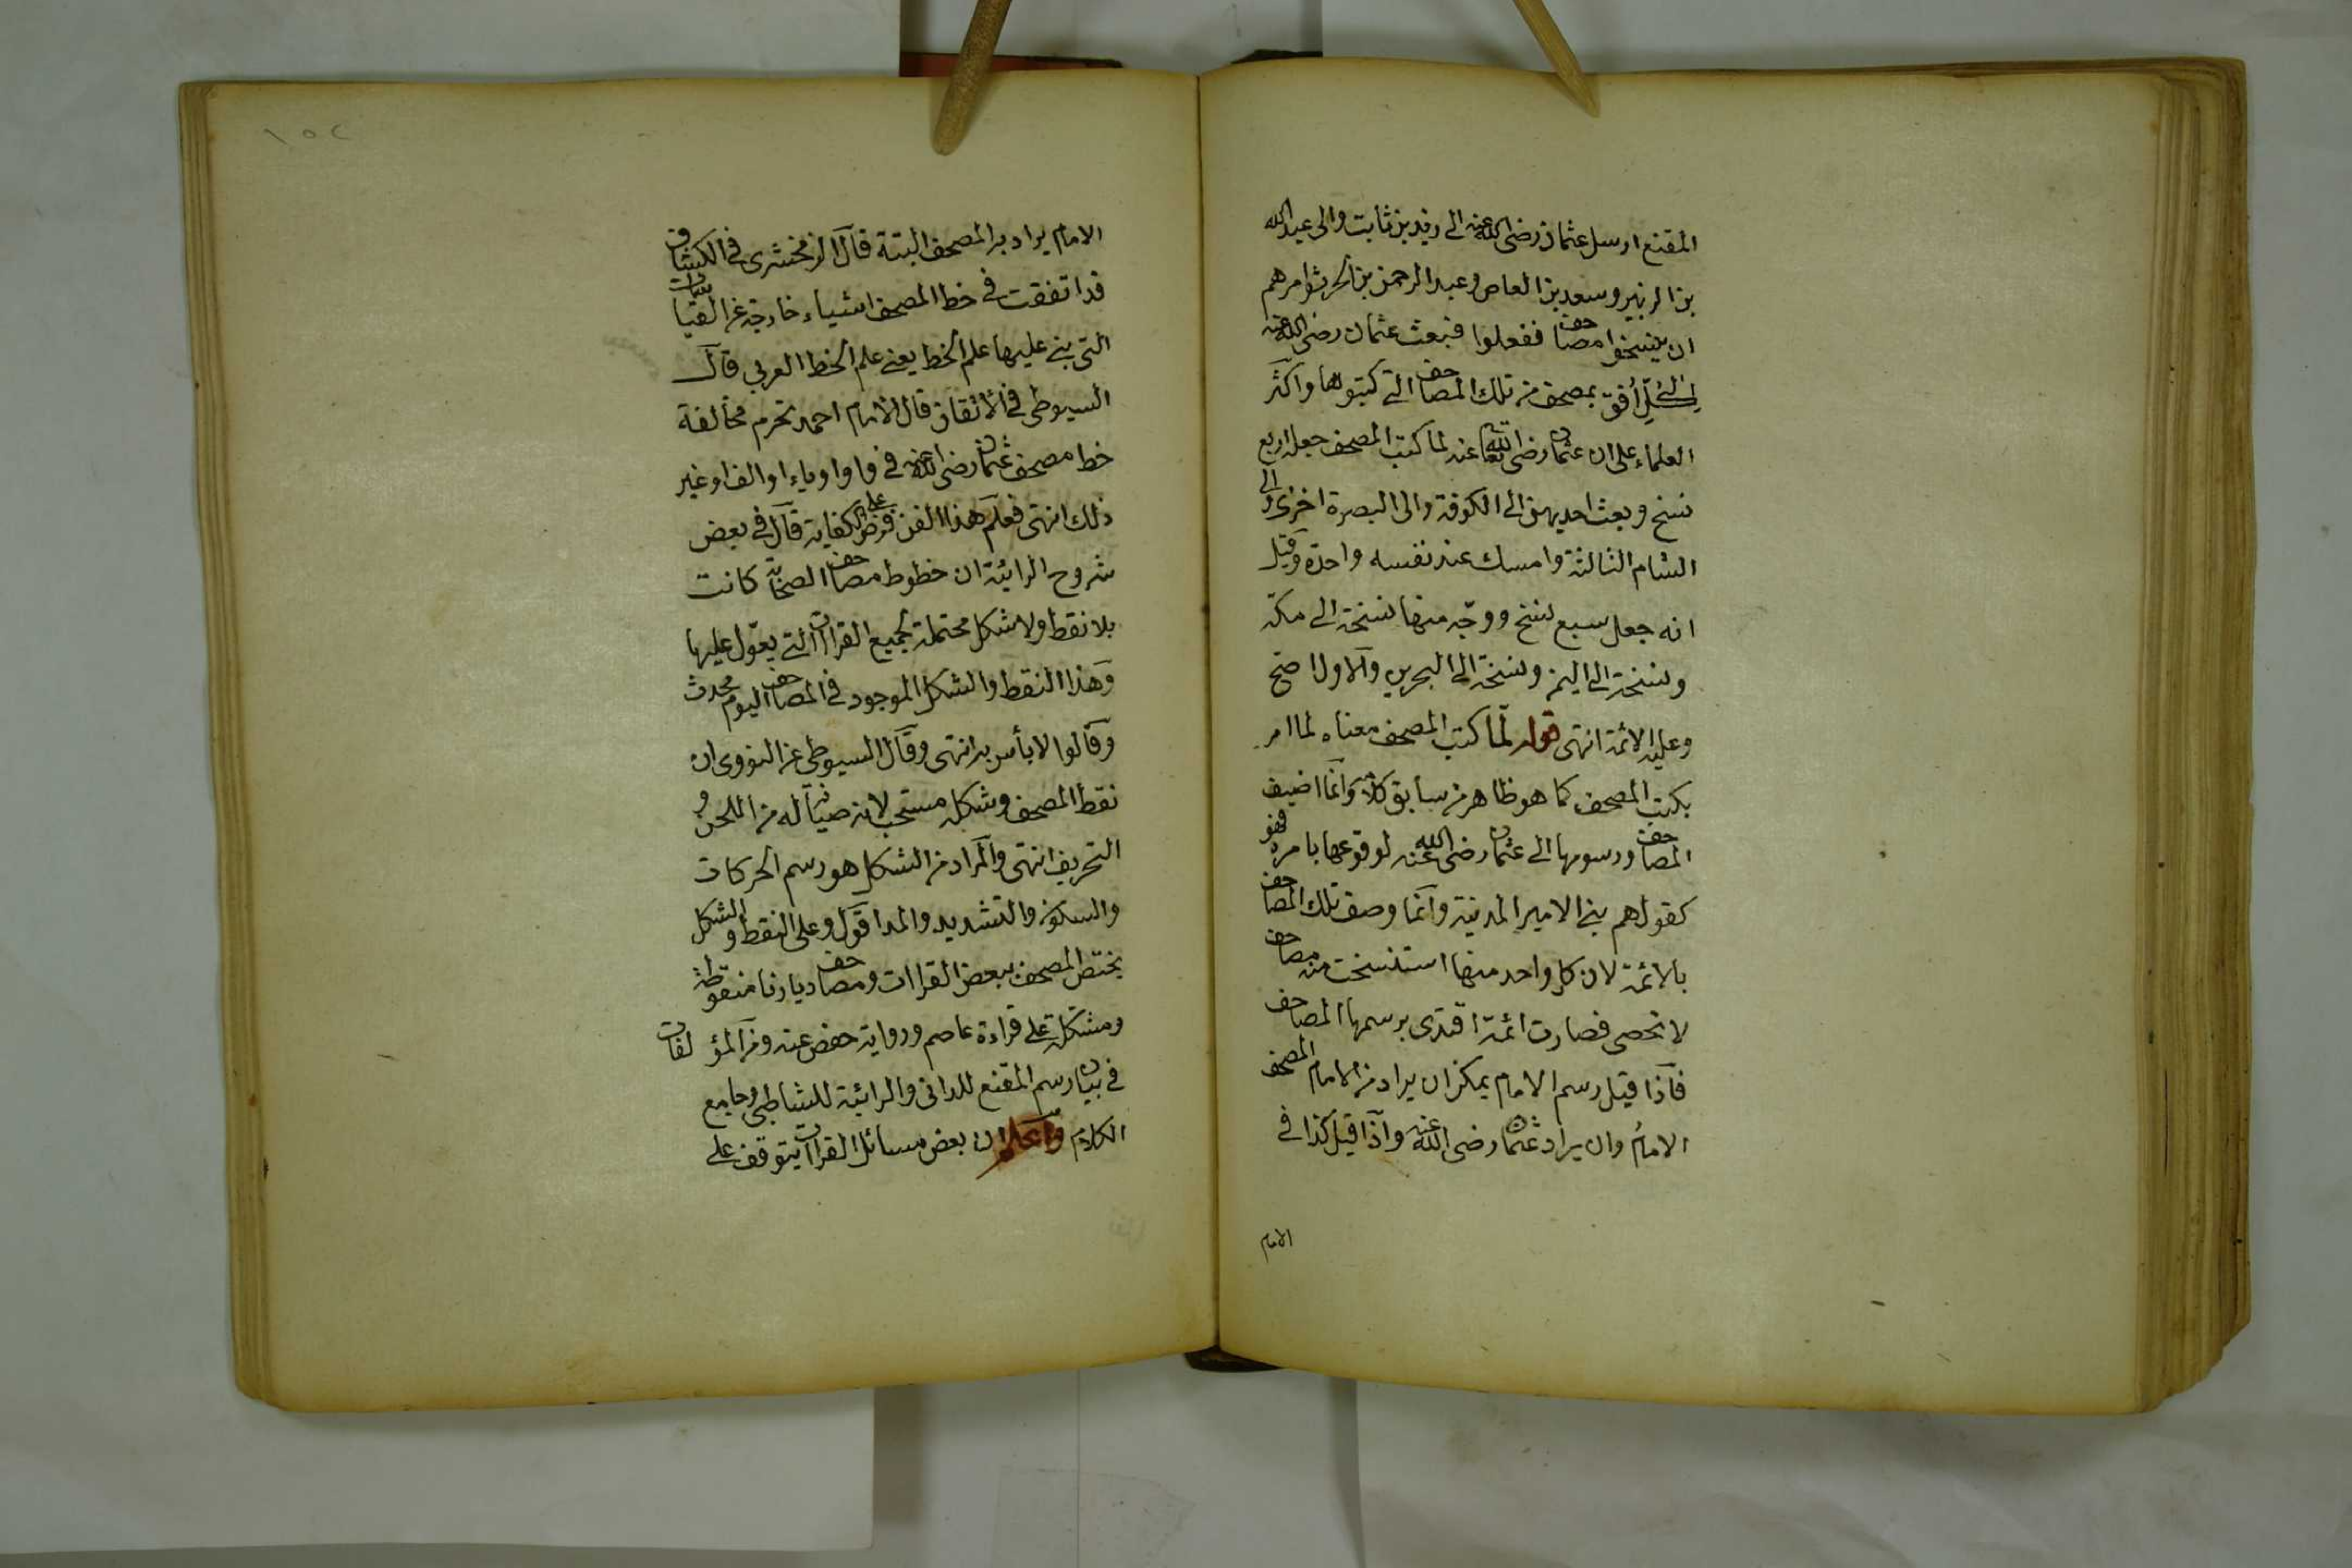 المقنع ارسل عثمان رضى الله عنه الى زيد بن ثابت والى عبد الله
بن الزبير وسعد بن العاص وعبد الرحمن بن الحرث وامرهم
ان ينسخوا مصاحف ففعلوا فبعث عثمان رضى الله عنه
افق بمصحف من تلك المصاحف التى كتبوها واكثر
العلماء على ان عثمان رضى الله تعالى عنه لما كتب المصحف جعله اربع
نسخ وبعث احديهن الى الكوفة والى البصرة اخرى والى
الشام الثالثة وامسك عند نفسه واحدة وقيل
انه جعل سبع نسخ ووجّه منها نسخة الى مكة
ونسخة الى اليمن ونسخة الى البحرين والاول اصح
وعليه الائمة انتهى قوله لمّا كتب المصحف معناه لما امر
بكتب المصحف كما هو ظاهر من سابق كلامه وانما اضيف
المصاحف ورسومها الى عثمان رضى الله عنه لوقوعها بامره فهو
كقولهم بنى الامير المدينة وانما وصف تلك المصاحف
بالائمة لان كل واحد منها استنسخت منه مصاحف
لا تحصى فصارت ائمة اقتدى برسمها المصاحف
فاذا قيل رسم الامام يمكن ان يراد من الامام المصحف
الامامُ وان يراد عثمان رضى الله عنه واذا قيل كذا فى
الامام
١٥٢
الامام يراد به المصحف البتة قال الزمخشرى فى الكشاف
قد اتفقت فى خط المصحف اشياء خارجة عن القياسات
التى بنى عليها علم الخط يعنى علم الخط العربى قال
السيوطى فى الاتقان قال الامام احمد تحرم مخالفة
خط مصحف عثمان رضى الله عنه فى واو او ياء او الف او غير
ذلك انتهى فعلم هذا الفن فرض على الكفاية قال فى بعض
شروح الرائية ان خطوط مصاحف الصحابة كانت
بلا نقط ولا شكل محتملة لجميع القراات التى يعوّل عليها
وهذا النقط والشكل الموجود فى المصاحف اليوم محدث
وقالوا لا بأس به انتهى وقال السيوطى عن النووى ان
نقط المصحف وشكله مستحب لانه صيانة له من اللحن و
التحريف انتهى والمراد من الشكل هو رسم الحركات
والسكون والتشديد والمد اقول وعلى النقط والشكل
يختص المصحف ببعض القراات ومصاحف ديارنا منقوطة
ومشكلة على قراءة عاصم ورواية حفص عنه ومن المؤلفات
فى بيان رسم المقنع للدانى والرائية للشاطبى وجامع
الكلام واعلم ان بعض مسائل القراات يتوقف على